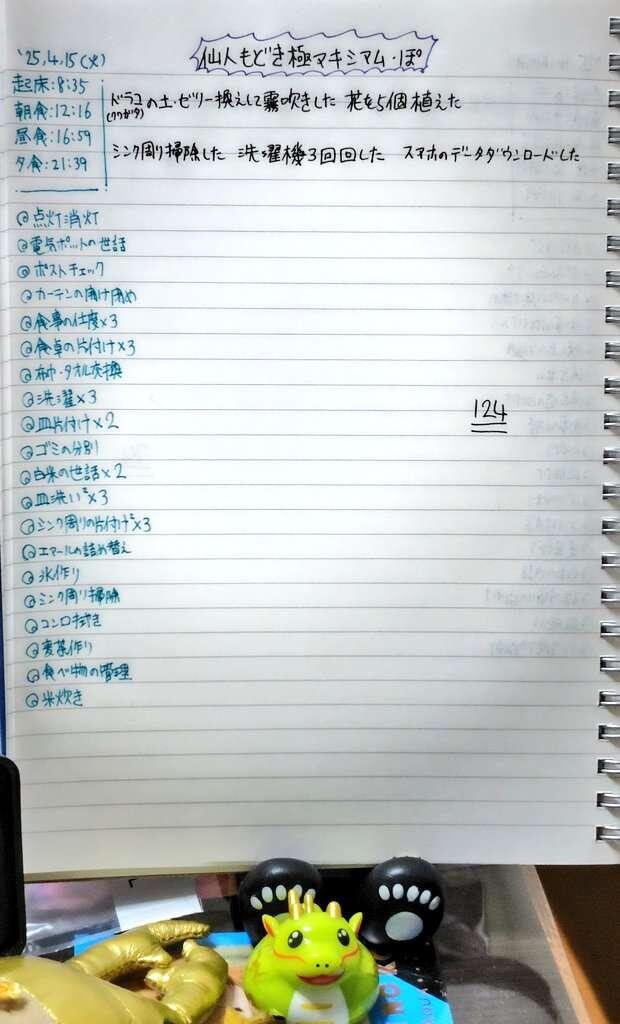 '25.4.15(火)
仙人もどき極マキシマム・ぽ
起床:8:35
朝食:12:16
昼食:16:59
夕食:21:39
ドラコの土・ゼリー換えして霧吹きした 花を5個植えた
(クワガタ)
シンク周り掃除した 洗濯機3回回した スマホのデータダウンロードした
点灯消灯
電気ポットの世話
ポストチェック
カーテンの開け閉め
食事の仕度×3
食卓の片付け×3
布巾・タオル交換
洗濯×3
皿片付け×2
ゴミの分別
白米の世話×2
皿洗い×3
シンク周りの片付け×3
エマールの詰め替え
氷作り
シンク周り掃除
コンロ拭き
麦茶作り
食べ物の管理
米炊き
124